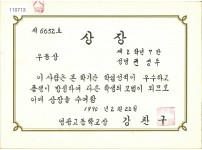 110713
제 6652 호
상 장
우등상
제 2 학년 7 반
성명
이 사람은 본 학기간 학업성적이 우수하고
품행이 방정하여 다른 학생의 모범이 되므로
이에 상장을 수여함
1990 년 2 월 22 일
고등학교장 강 찬 구